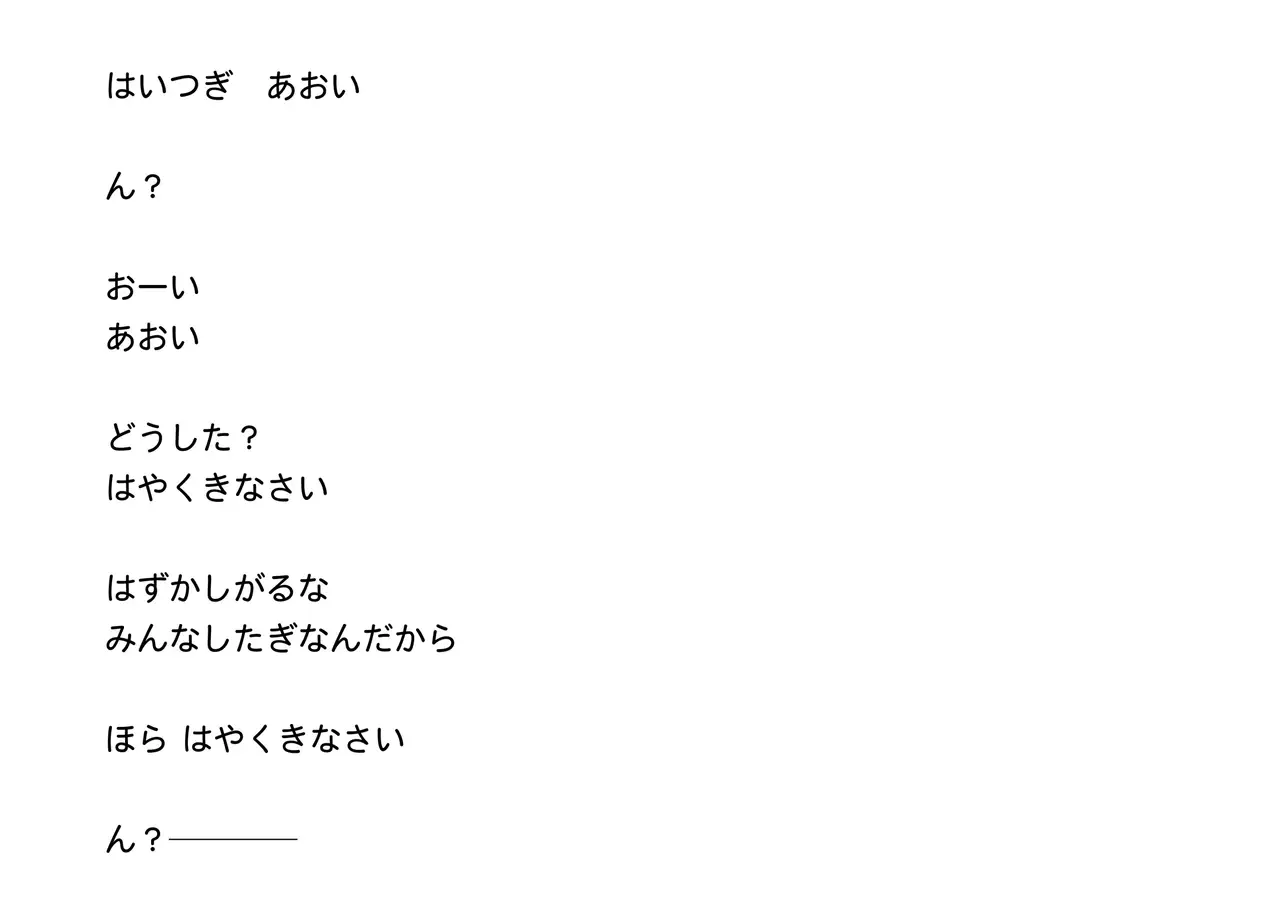 はいつぎ　あおい
ん？
おーい
あおい
どうした？
はやくきなさい
はずかしがるな
みんなしたぎなんだから
ほら はやくきなさい
ん？――――